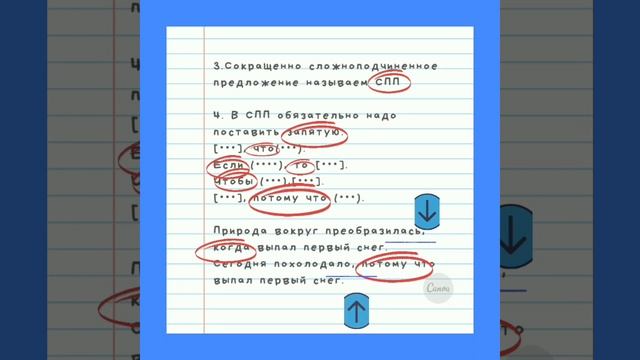 3.Сокращенно сложноподчиненное
предложение называем СПП
4. В СПП обязательно надо
поставить запятую.
[•••], что(•••).
Если (••••), то [•••].
Чтобы (•••),[•••].
[•••], потому что (•••).
Природа вокруг преобразилась,
когда выпал первый снег.
Сегодня похолодало, потому что
выпал первый снег.
Canva